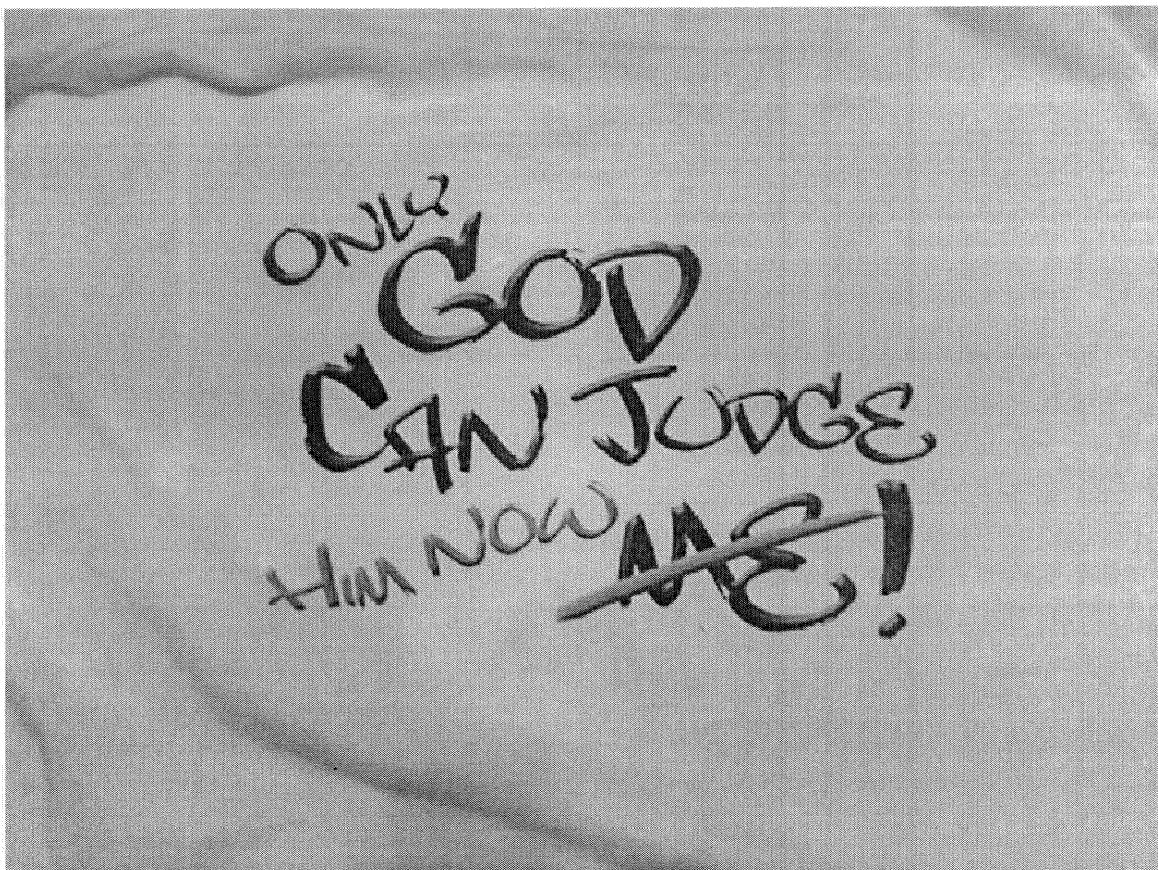 ONLY
GOD
CAN JUDGE
HIM NOW ME!